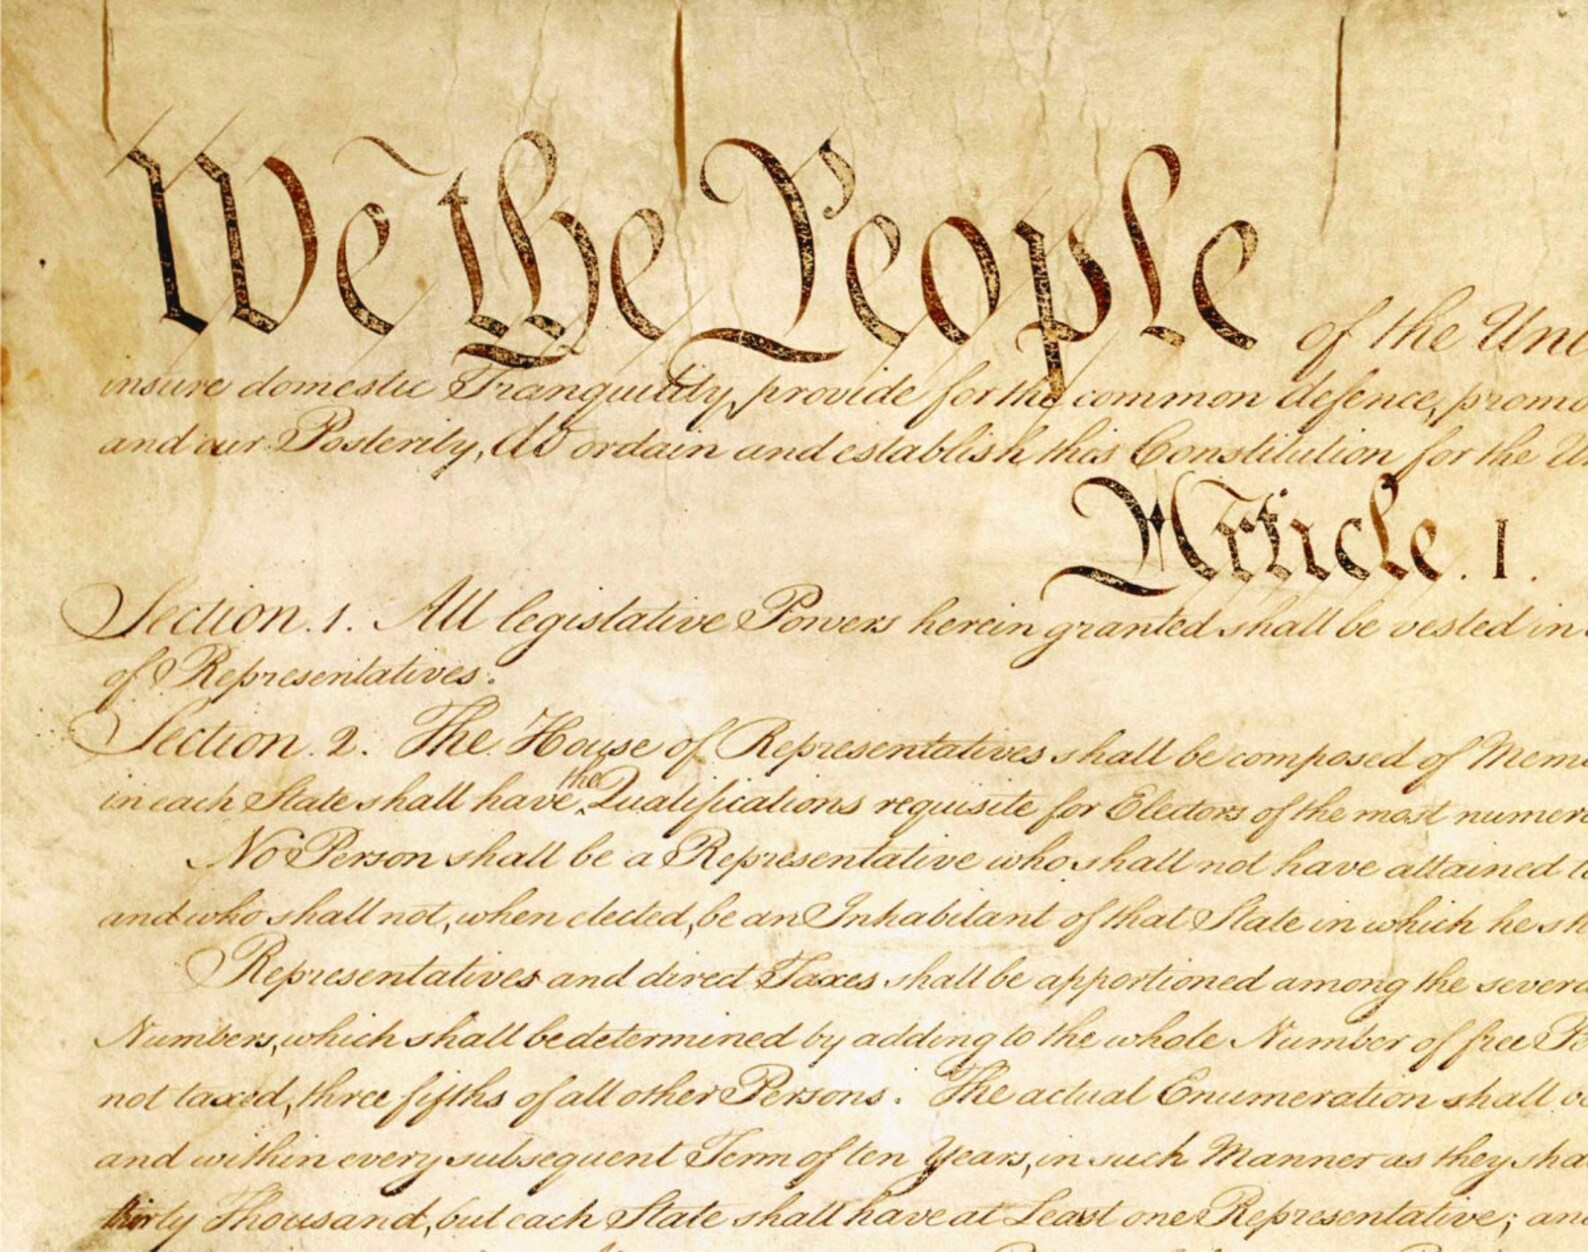 We the People of the Uni
insure domestic Tranquility, provide for the common defence, promo
and our Posterity, do ordain and establish this Constitution for the Un
Article. I.
Section. 1. All legislative Powers herein granted shall be vested in
of Representatives.
Section. 2. The House of Representatives shall be composed of Mem
in each State shall have the Qualifications requisite for Electors of the most numer
No Person shall be a Representative who shall not have attained t
and who shall not, when elected, be an Inhabitant of that State in which he sh
Representatives and direct Taxes shall be apportioned among the severa
Numbers, which shall be determined by adding to the whole Number of free Pe
not taxed, three fifths of all other Persons. The actual Enumeration shall be
and within every subsequent Term of ten Years, in such Manner as they sha
thirty Thousand, but each State shall have at Least one Representative; and